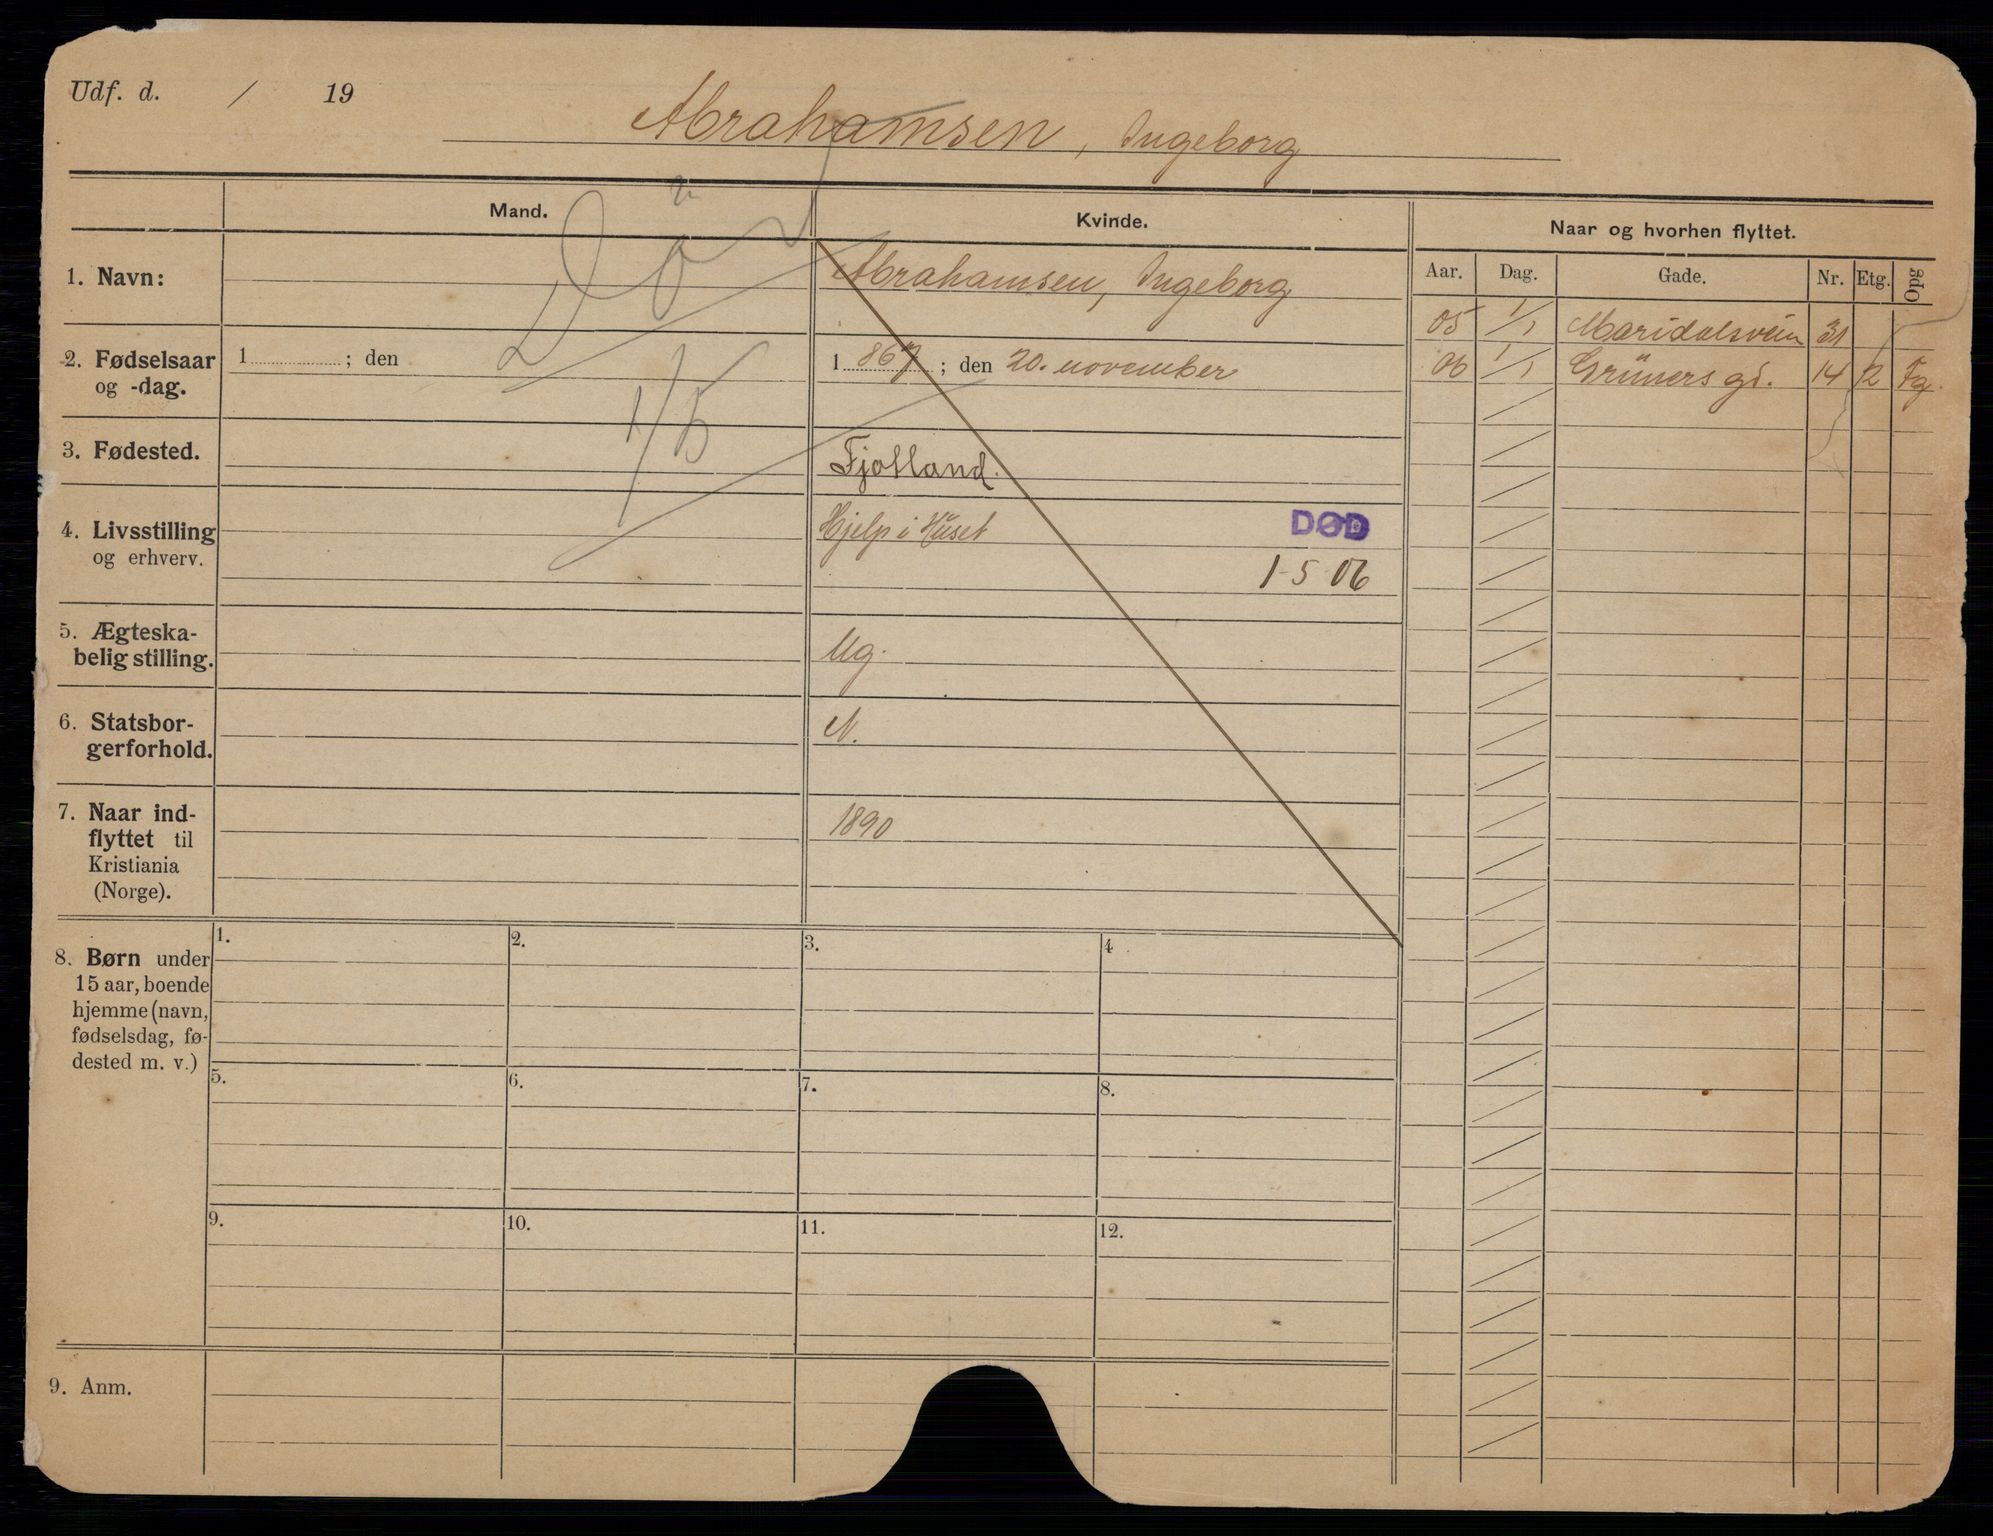 Udf. d. / 19
Abrahamsen, Ingeborg
Mand.
Kvinde.
Naar og hvorhen flyttet.
Aar. Dag. Gade. Nr. Etg. Opg
1. Navn:
Abrahamsen, Ingeborg
05 1/1 Maridalsveien 31
06 1/1 Grüners gd. 14 2 Fg.
2. Fødselsaar
og -dag.
1 ; den
1 867 ; den 20. november
Död
1/5
3. Fødested.
Fjotland.
4. Livsstilling
og erhverv.
Hjelp i Huset
DØD
1-5 06
5. Ægteska-
belig stilling.
Ug.
6. Statsbor-
gerforhold.
N.
7. Naar ind-
flyttet til
Kristiania
(Norge).
1890
8. Børn under
15 aar, boende
hjemme (navn,
fødselsdag, fø-
dested m. v.)
1. 2. 3. 4
5. 6. 7. 8.
9. 10. 11. 12.
9. Anm.